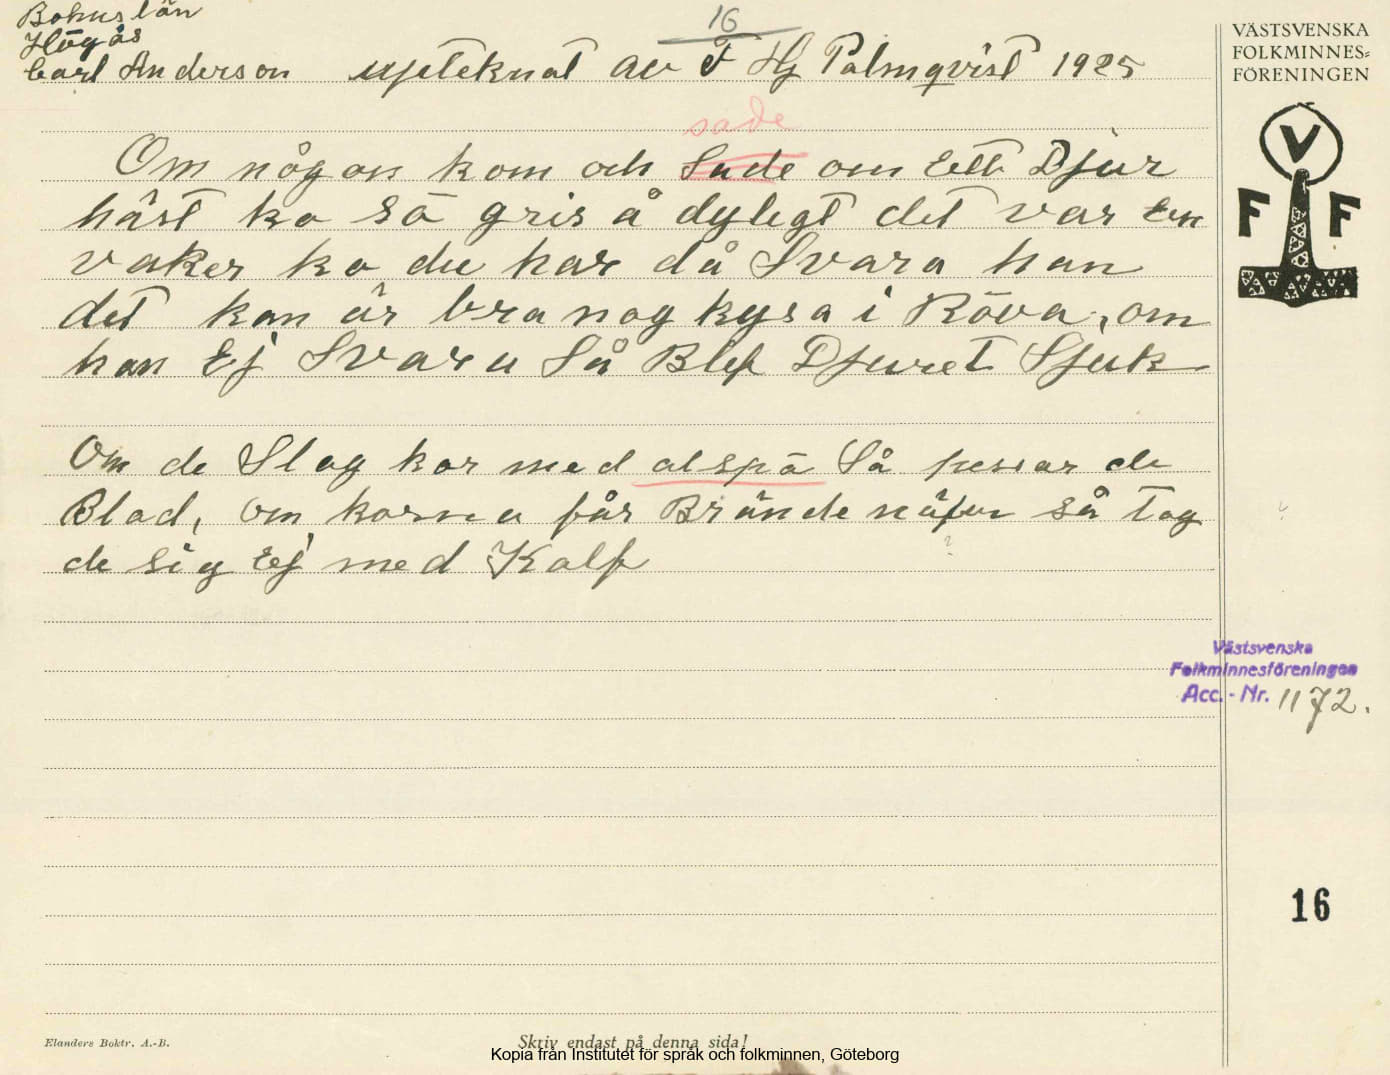 Bohuslän
Högås
Carl Anderson upteknat av F Hj Palmqvist 1925
16
sade
Om någon kom och Sade om Ett Djur
häst ko so gris å dylegt det var En
vaker ko du har då Svara han
det kan är bra nog kysa i Röva, om
han Ej Svara Så Blef Djuret Sjuk
Om de Slag kor med alspö Så pessar de
Blod, om korna får Brände näfur så tog
de sig Ej med Kalf
?
VÄSTSVENSKA
FOLKMINNES=
FÖRENINGEN
V
F F
Västsvenska
Folkminnesföreningen
Acc. - Nr. 1172.
16
Elanders Boktr. A.-B.
Skriv endast på denna sida!
Kopia från Institutet för språk och folkminnen, Göteborg